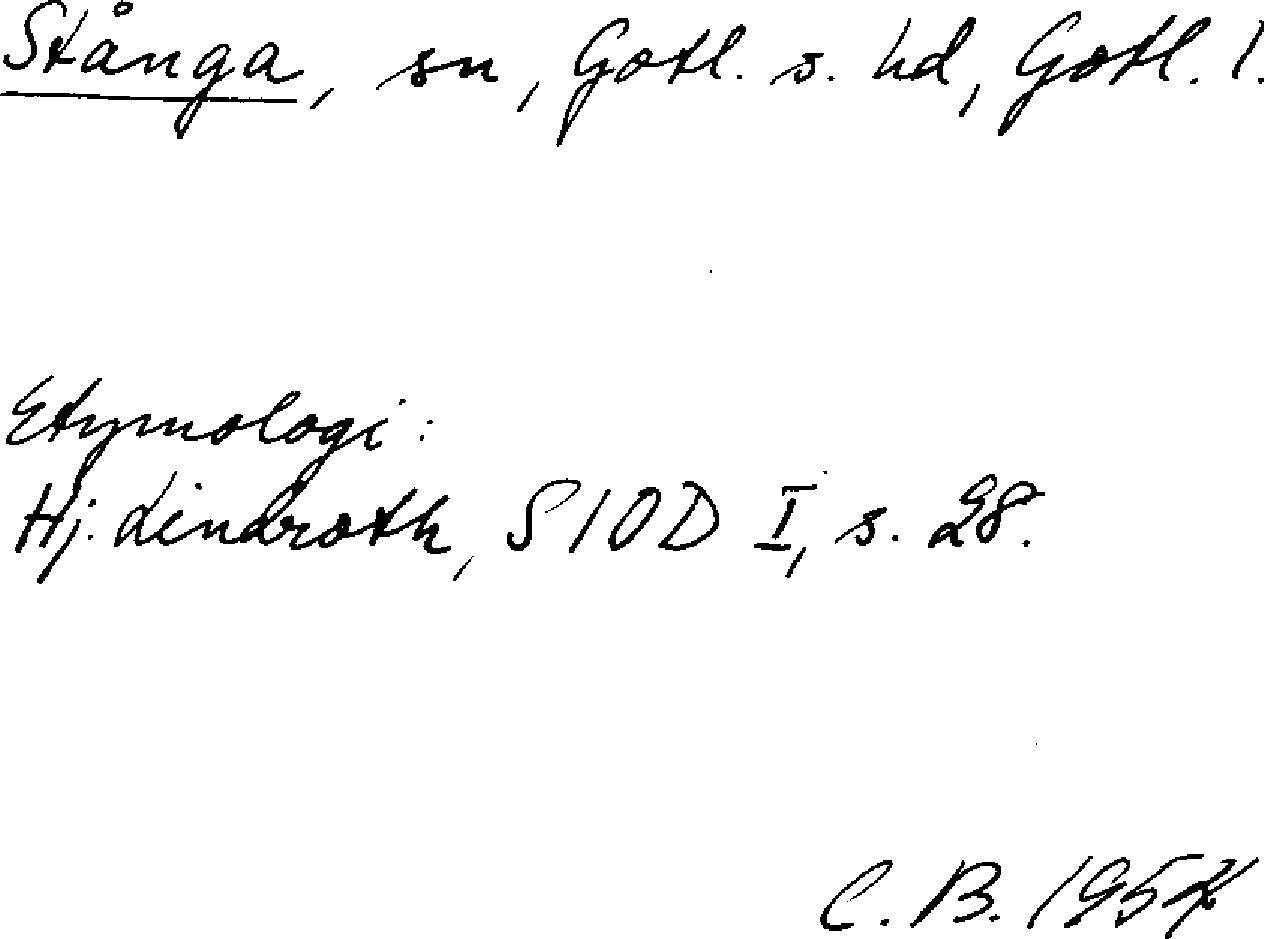 Stånga, sn, Gotl. s. hd, Gotl. l.
Etymologi:
Hj. Lindroth, SIOD I, s. 28.
C. B.